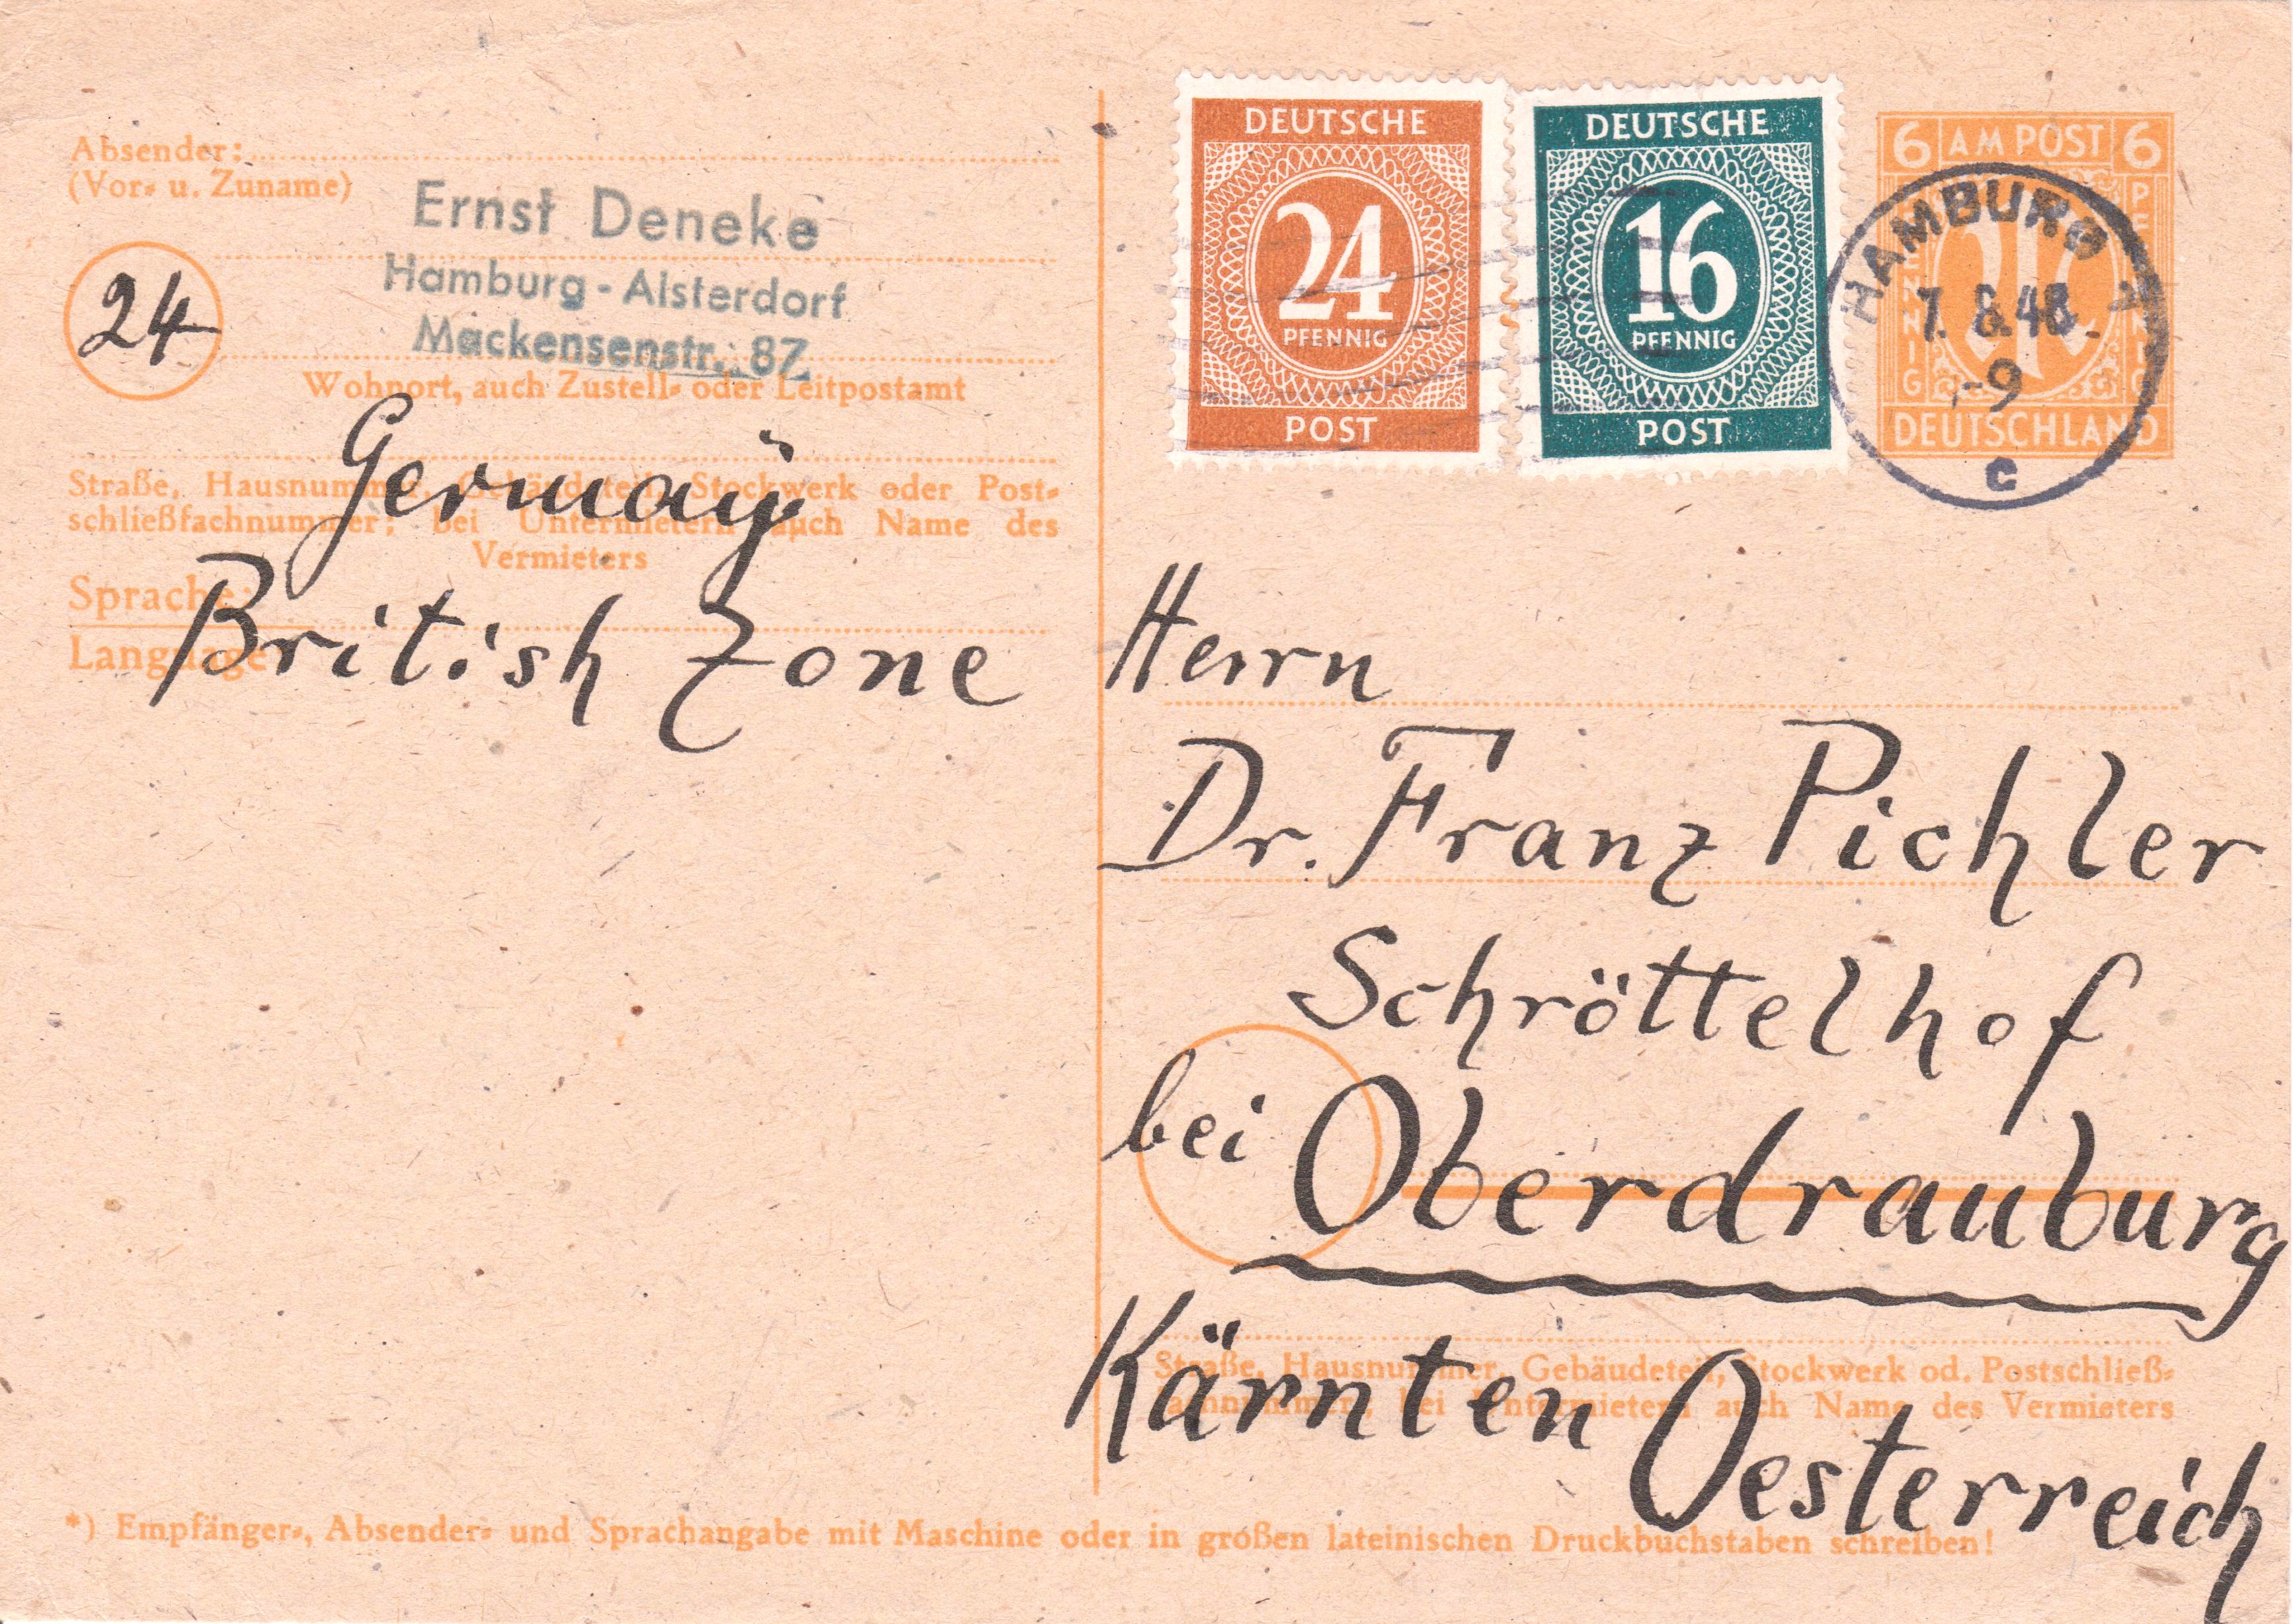 Absender:
(Vor- u. Zuname)
Ernst Deneke
Hamburg-Alsterdorf
Mackensenstr. 8
24
Wohnort, auch Zustell- oder Leitpostamt
Germany
Straße, Hausnummer, Gebäudeteil, Stockwerk oder Post-
schließfachnummer; bei Untermietern auch Name des
Vermieters
Sprache:
Language
British Zone
DEUTSCHE
24
PFENNIG
POST
DEUTSCHE
16
PFENNIG
POST
6 AM POST 6
PFENNIG
PFENNIG
DEUTSCHLAND
HAMBURG
7. 8. 46.
-9
c
Herrn
Dr. Franz Pichler
Schröttelhof
bei Oberdrauburg
Kärnten Oesterreich
Straße, Hausnummer, Gebäudeteil, Stockwerk od. Postschließ-
fachnummer, bei Untermietern auch Name des Vermieters
*) Empfänger-, Absender- und Sprachangabe mit Maschine oder in großen lateinischen Druckbuchstaben schreiben!